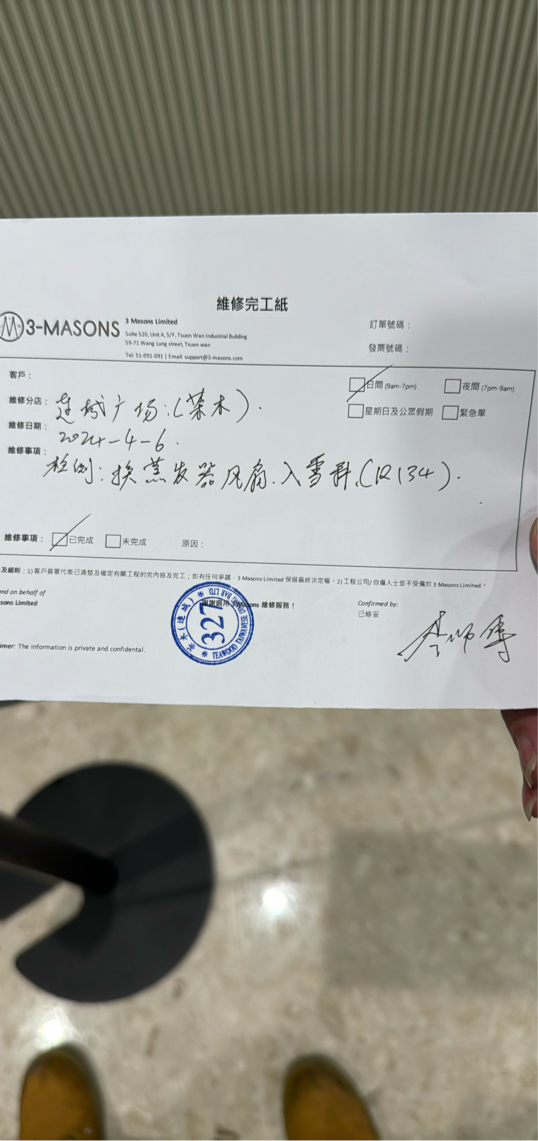 維修完工紙
3-MASONS
3 Masons Limited
Suite 520, Unit A, 5/F, Tsuen Wan Industrial Building
59-71 Wang Lung street, Tsuen wan
Tel: 51-091-091 | Email: support@3-masons.com
訂單號碼：
發票號碼：
客戶：
日間 (9am-7pm) 夜間 (7pm-9am)
維修分店： 连城广场：(茶木).
星期日及公眾假期 緊急單
維修日期： 2024-4-6.
維修事項： 检例：换蒸发器风扇.入雪种.(R134).
維修事項： 已完成 未完成 原因：
及細則：1) 客戶簽署代表已清楚及確定有關工程的完內容及完工；如有任何爭議，3 Masons Limited 保留最終決定權。2)工程公司/自僱人士並不受僱於 3 Masons Limited。
nd on behalf of
sons Limited
維修服務！
茶木(連城)
327
TEAWOOD TAIWANESE
BAR LTD.
Confirmed by:
已修妥
李师傅
imer: The information is private and confidental.